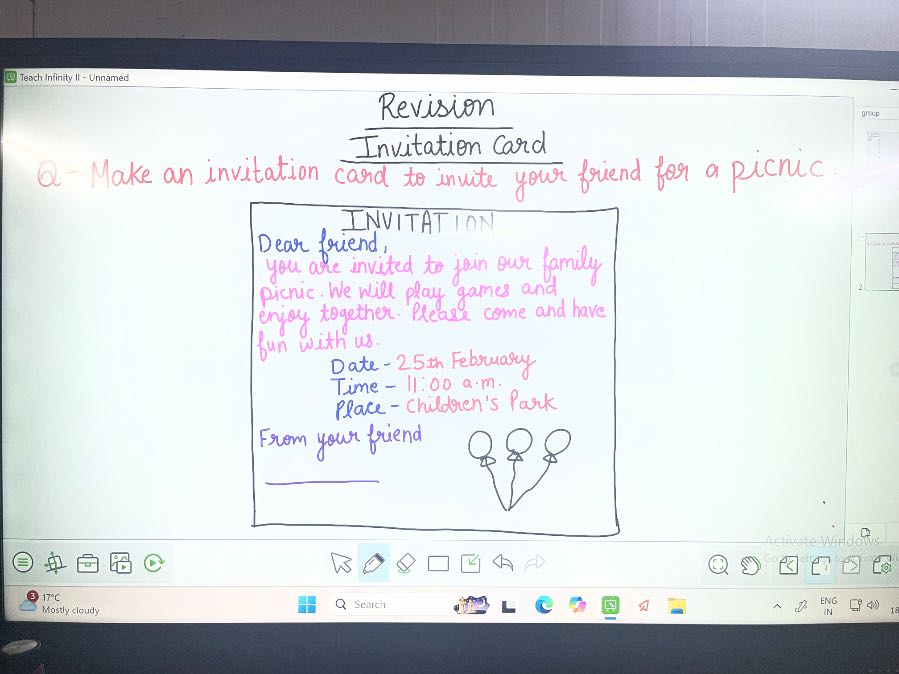 Teach Infinity II - Unnamed
group
Revision
Invitation Card
Q - Make an invitation card to invite your friend for a picnic.
INVITATION
Dear friend,
you are invited to join our family
picnic. We will play games and
enjoy together. Please come and have
fun with us.
Date - 25th February
Time - 11:00 a.m.
Place - Children's Park
From your friend
2
Activate Windows
3
17°C
Mostly cloudy
Search
ENG
IN
18